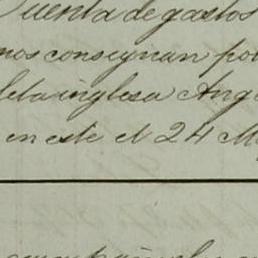 Cuenta de gastos
nos consignan por
leta inglesa Ang
en este el 24 M